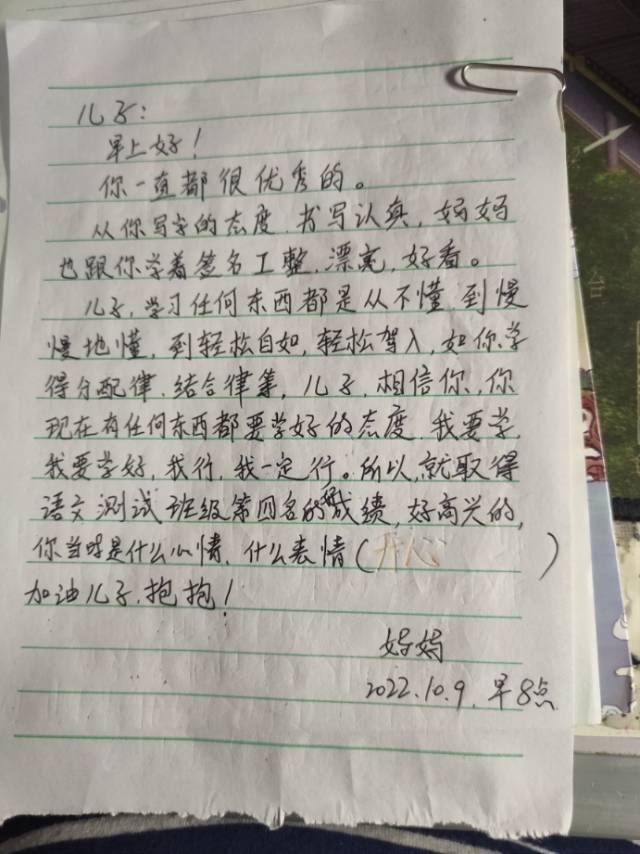 儿子：
早上好！
你一直都很优秀的。
从你写字的态度、书写认真，妈妈
也跟你学着签名工整、漂亮、好看。
儿子，学习任何东西都是从不懂到慢
慢地懂，到轻松自如，轻松驾入，如你学
得分配律、结合律等，儿子，相信你，你
现在有任何东西都要学好的态度，我要学，
我要学好，我行，我一定行。所以，就取得
语文测试班级第四名的成绩，好高兴的，
你当时是什么心情、什么表情（开心）
加油儿子，抱抱！
妈妈
2022.10.9.早8点